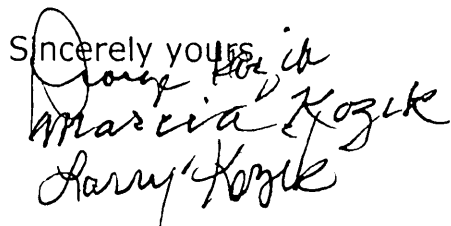 Sincerely yours,
George Kozik
Marcia Kozik
Larry Kozik